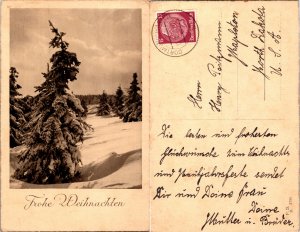 Frohe Weihnachten
Herrn
Henry Bergmann
Mapleton
North Dakota
U. S. A.
Die besten und herzlichsten
Glückwünsche zum Weihnachten
und Neujahrsfeste sendet
Dir und Deine Frau
Deine
Mutter u. Brüder